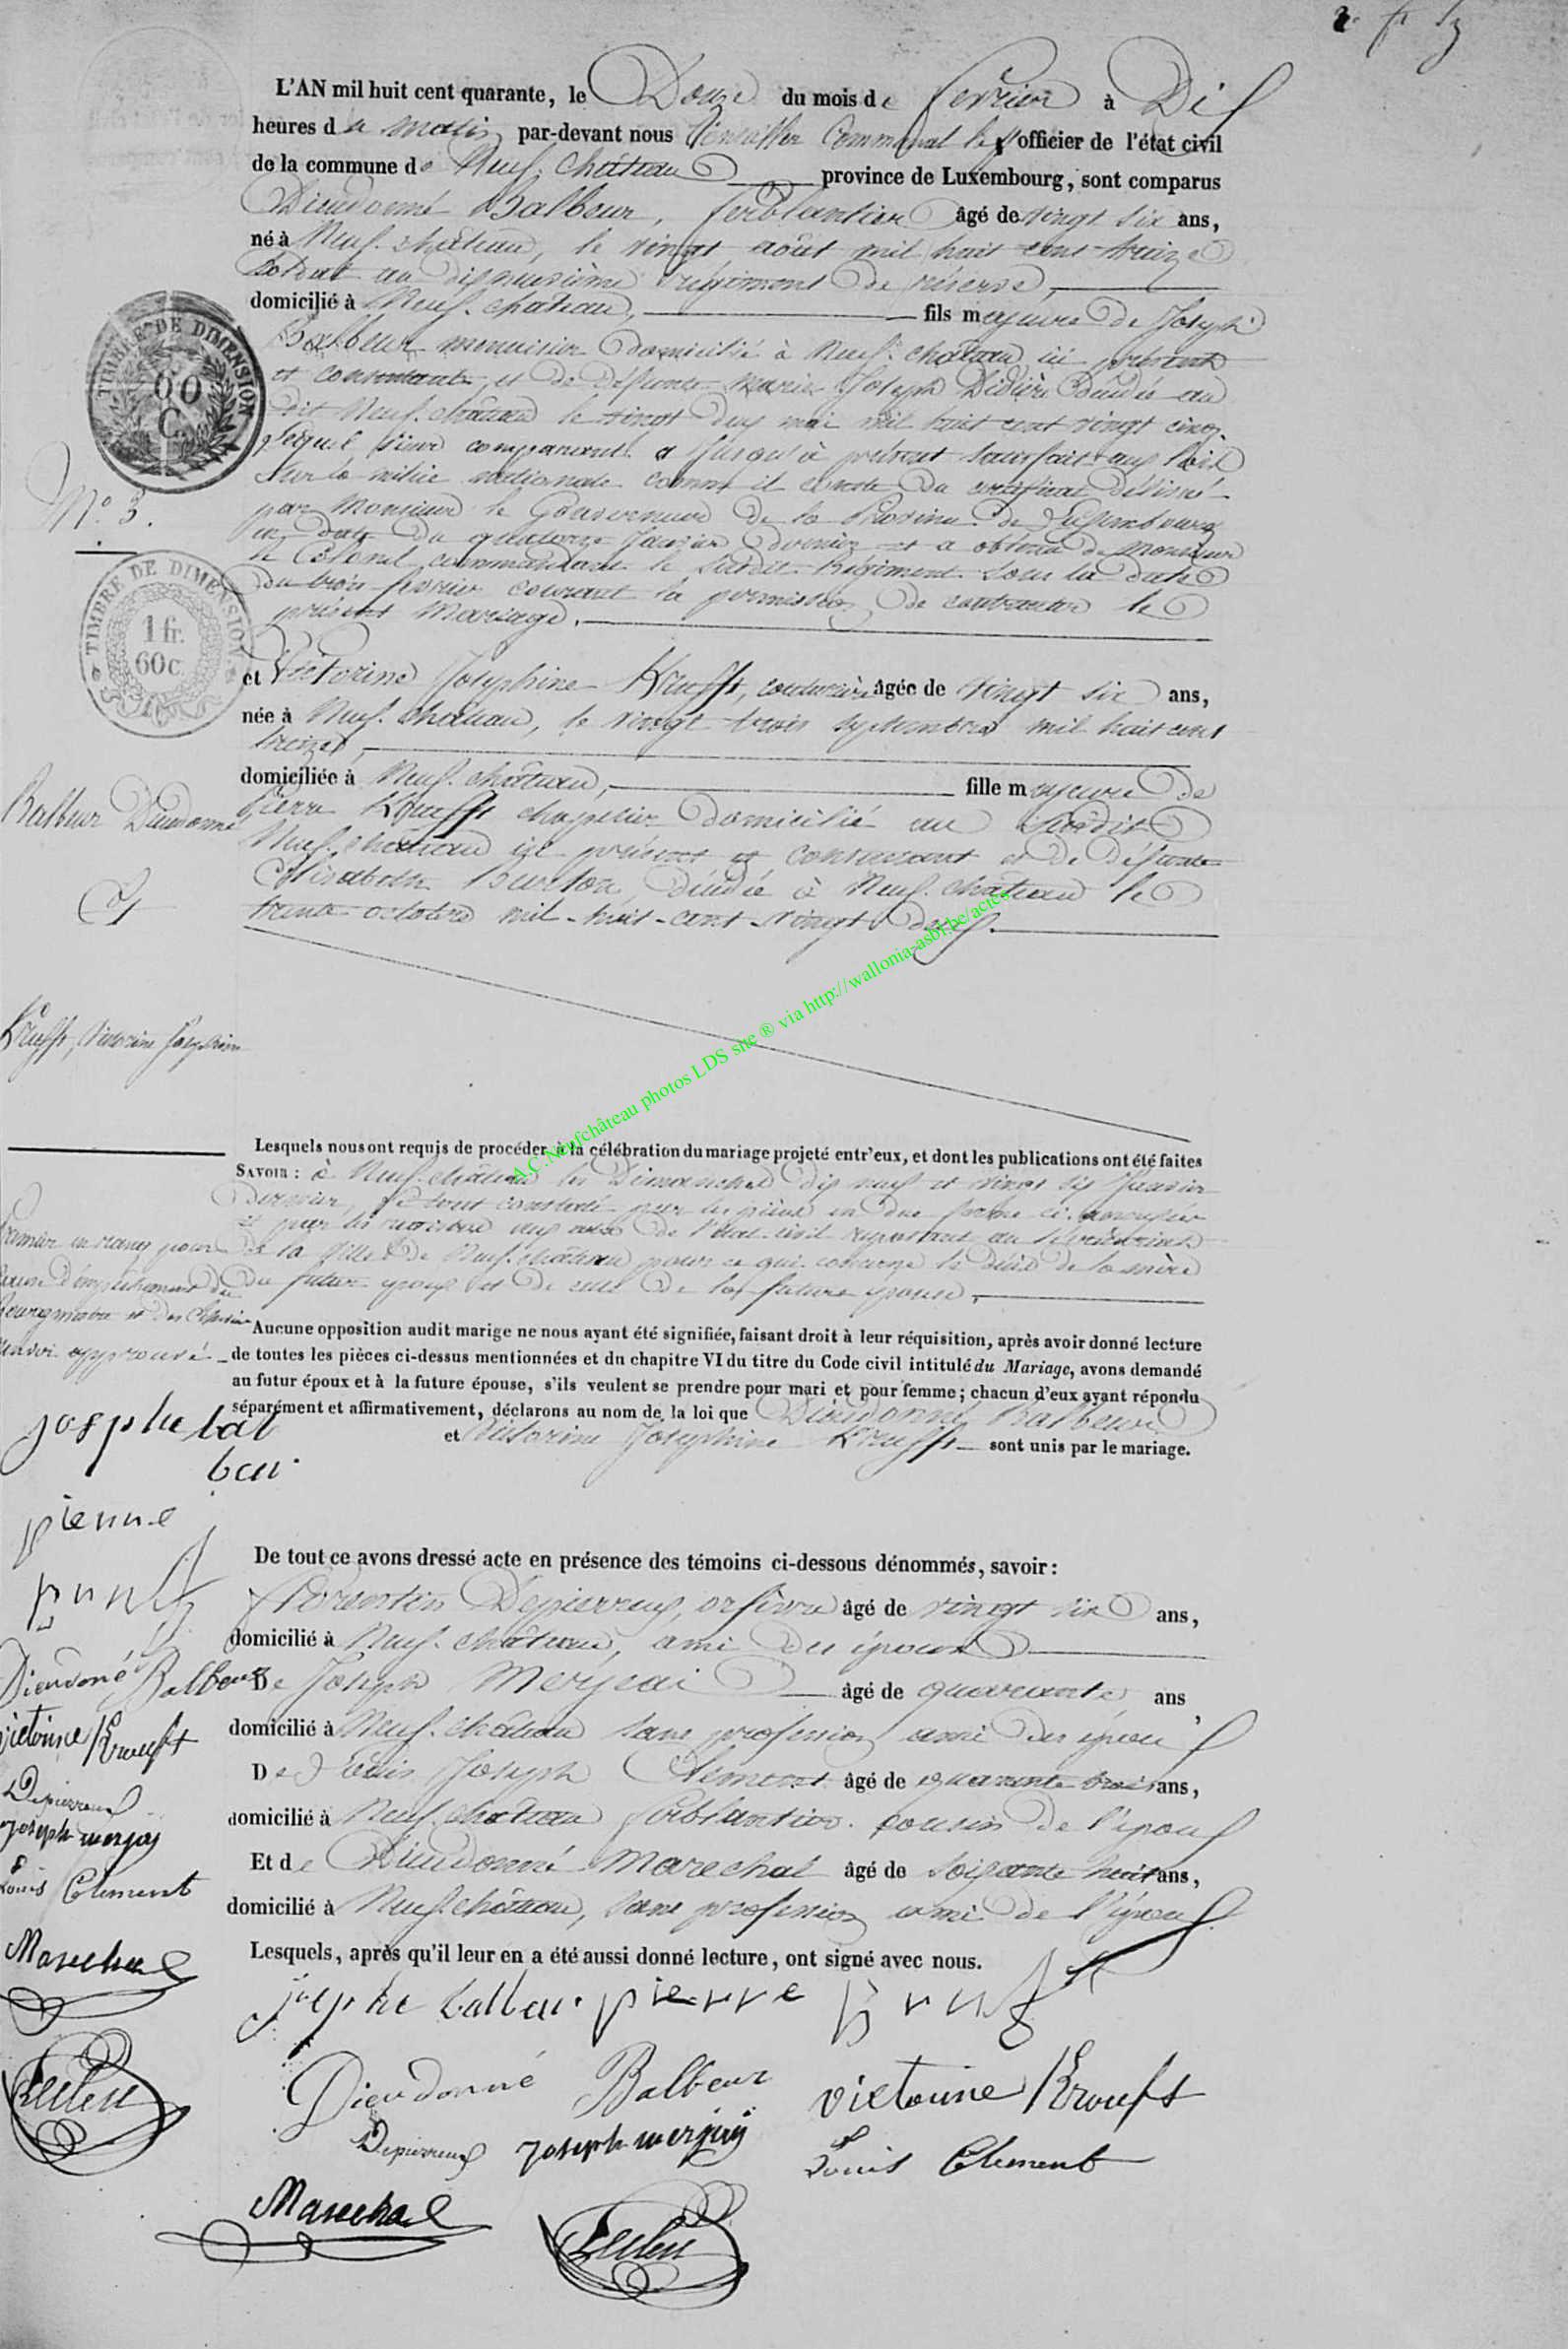 L'AN mil huit cent quarante, le Douze du mois de fevrier à Dix
heures du matin par-devant nous Conseiller Communal le 1er officier de l'état civil
de la commune de Neuf-chateau province de Luxembourg, sont comparus
Dieudonné Balbeur, ferblantier âgé de vingt six ans,
né à Neuf-château, le vingt août mil huit cent treize
Soldat au dixneuvième régiment de réserve,
domicilié à Neuf-château, fils majeure de Joseph
Balbeur menuisier domicilié à Neuf-château ici présent
et consentant, et de défunte Marie Joseph Didier décédée au
dit Neuf-château le vingt deux mai mil huit cent vingt cinq.
lequel sieur comparant a jusqu'à présent satisfait aux lois
sur la milice nationale comme il conste du certificat délivré
par Monsieur le Gouverneur de la Province de Luxembourg
en date du quatorze Janvier dernier et a obtenu de Monsieur
le Colonel commandant le susdit Régiment sous la date
du trois fevrier courant la permission de contracter le
présent Mariage.
TIMBRE DE DIMENSION
60
C.
No. 3.
TIMBRE DE DIMENSION
1 fr.
60 c
et Victorine Josephine Krufft, couturière âgée de vingt six ans,
née à Neuf-château, le vingt trois septembre mil huit cent
treize,
domiciliée à Neuf-château, fille majeure de
Pierre Krufft chapelier domicilié au susdit
Neuf-château ici présent et consentant et de défunte
Elisabeth Burton, décédée à Neuf-château le
trente octobre mil-huit-cent-vingt deux.
Balbeur Dieudonné
Et
Krufft, Victorine Josephine
A.C. Neufchâteau photos LDS site ® via http://wallonia-asbl.be/actes
Lesquels nous ont requis de procéder à la célébration du mariage projeté entr'eux, et dont les publications ont été faites
SAVOIR : à Neuf-château les Dimanches dix neuf et vingt six Janvier
Dernier, le tout constaté par les pièces en due forme ci-annexées
et par les registres aux actes de l'état-civil reposant au secrétariat
de la ville de Neuf-château pour ce qui concerne le décès de la mère
du futur époux et de celle de la future épouse.
Premier en rang pour
cause d'empêchement du
Bourgmestre et des Echevins
renvoi approuvé
Aucune opposition audit marige ne nous ayant été signifiée, faisant droit à leur réquisition, après avoir donné lecture
de toutes les pièces ci-dessus mentionnées et du chapitre VI du titre du Code civil intitulé du Mariage, avons demandé
au futur époux et à la future épouse, s'ils veulent se prendre pour mari et pour femme ; chacun d'eux ayant répondu
séparément et affirmativement, déclarons au nom de la loi que Dieudonné Balbeur
et Victorine Josephine Krufft sont unis par le mariage.
josphe bal
beu.
pierre
De tout ce avons dressé acte en présence des témoins ci-dessous dénommés, savoir :
Florentin Depierreux, orfèvre âgé de vingt six ans,
domicilié à Neuf-château, ami des époux
De Joseph Merjai âgé de quarante ans,
domicilié à Neuf-château sans profession ami des époux
De Louis Joseph Clement âgé de quarante trois ans,
domicilié à Neuf-château ferblantier cousin de l'époux
Et de Dieudonné Marechal âgé de soixante huit ans,
domicilié à Neuf-château, sans profession ami de l'époux
Lesquels, après qu'il leur en a été aussi donné lecture, ont signé avec nous.
Dieudonné Balbeur
victoirine Kroufft
Depierreux
Joseph merjay
Louis Clement
Marechal
josphe balbeu. pierre
Dieudonné Balbeur victoirine Kroufft
Depierreux Joseph merjay Louis Clement
Marechal